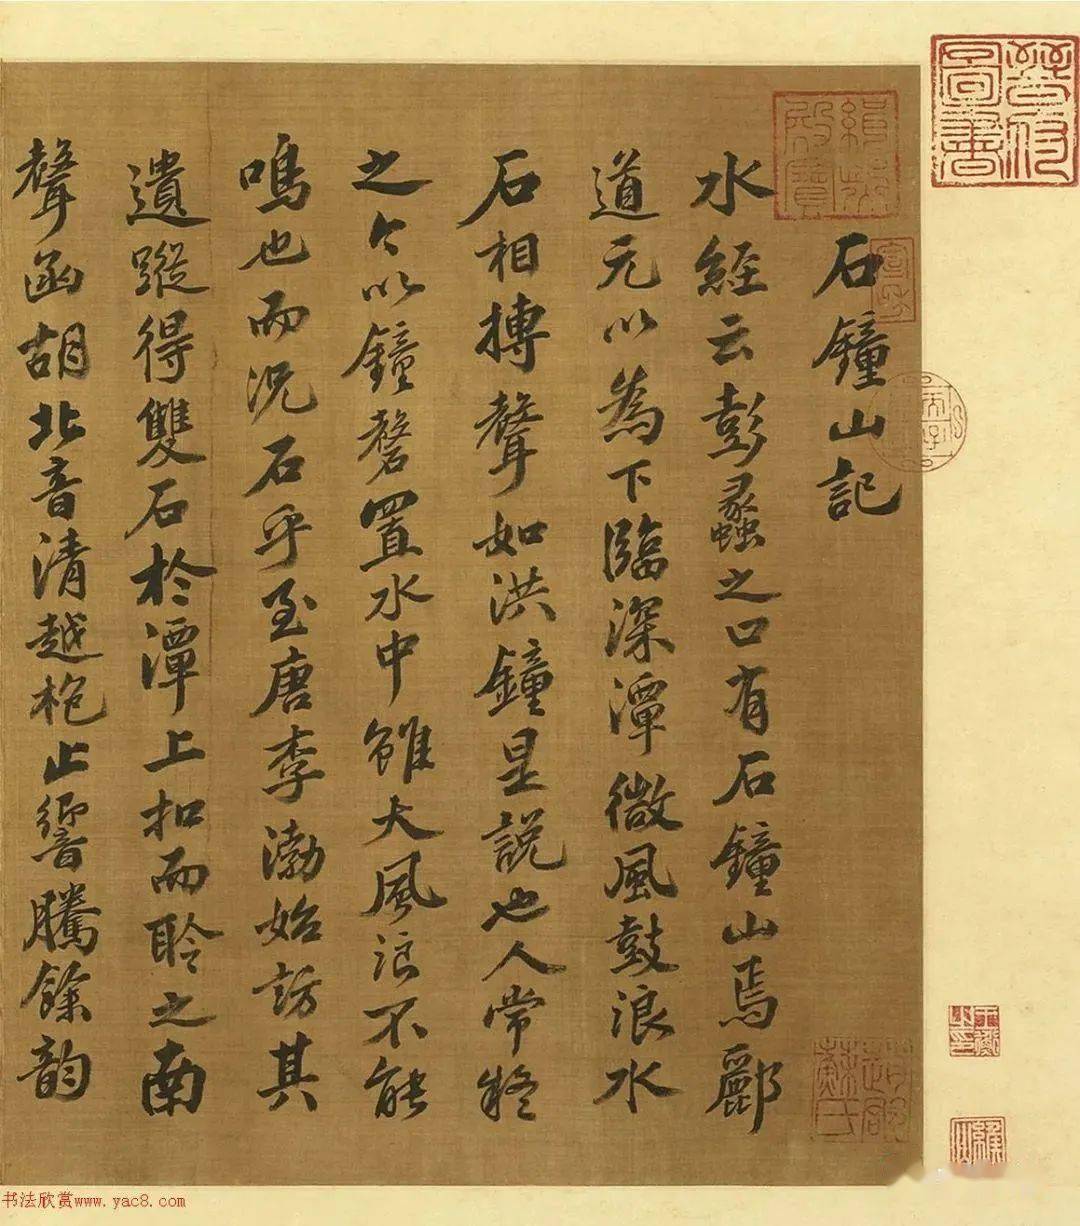 晉府圖書
緝熙殿寶
石鐘山記
水經云彭蠡之口有石鐘山焉酈
道元以為下臨深潭微風鼓浪水
石相搏聲如洪鐘是說也人常疑
之今以鐘磬置水中雖大風浪不能
鳴也而況石乎至唐李渤始訪其
遺蹤得雙石於潭上扣而聆之南
聲函胡北音清越枹止響騰餘韵
书法欣赏www.yac8.com